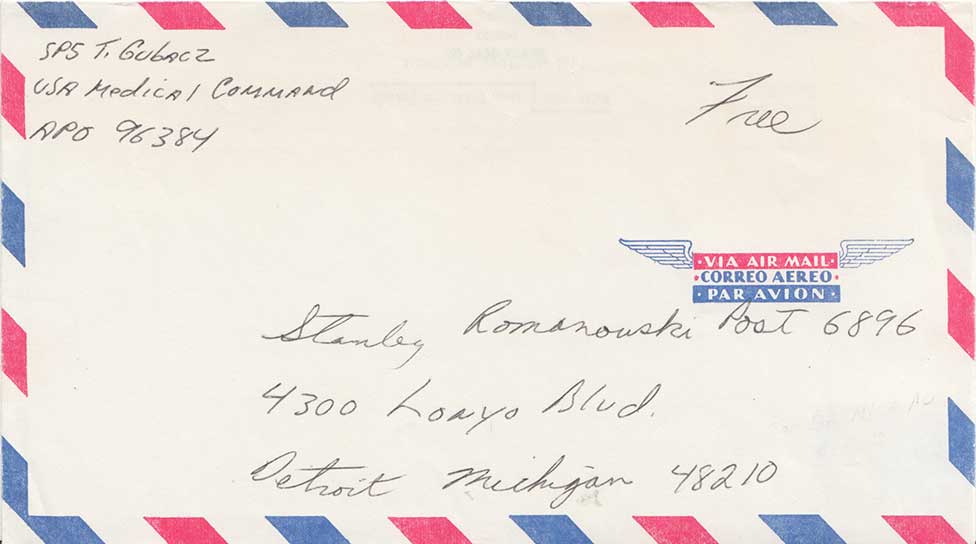 SP5 T. Gubacz
USA Medical Command
APO 96384
Free
VIA AIR MAIL
CORREO AEREO
PAR AVION
Stanley Romanowski Post 6896
4300 Lonyo Blvd.
Detroit Michigan 48210